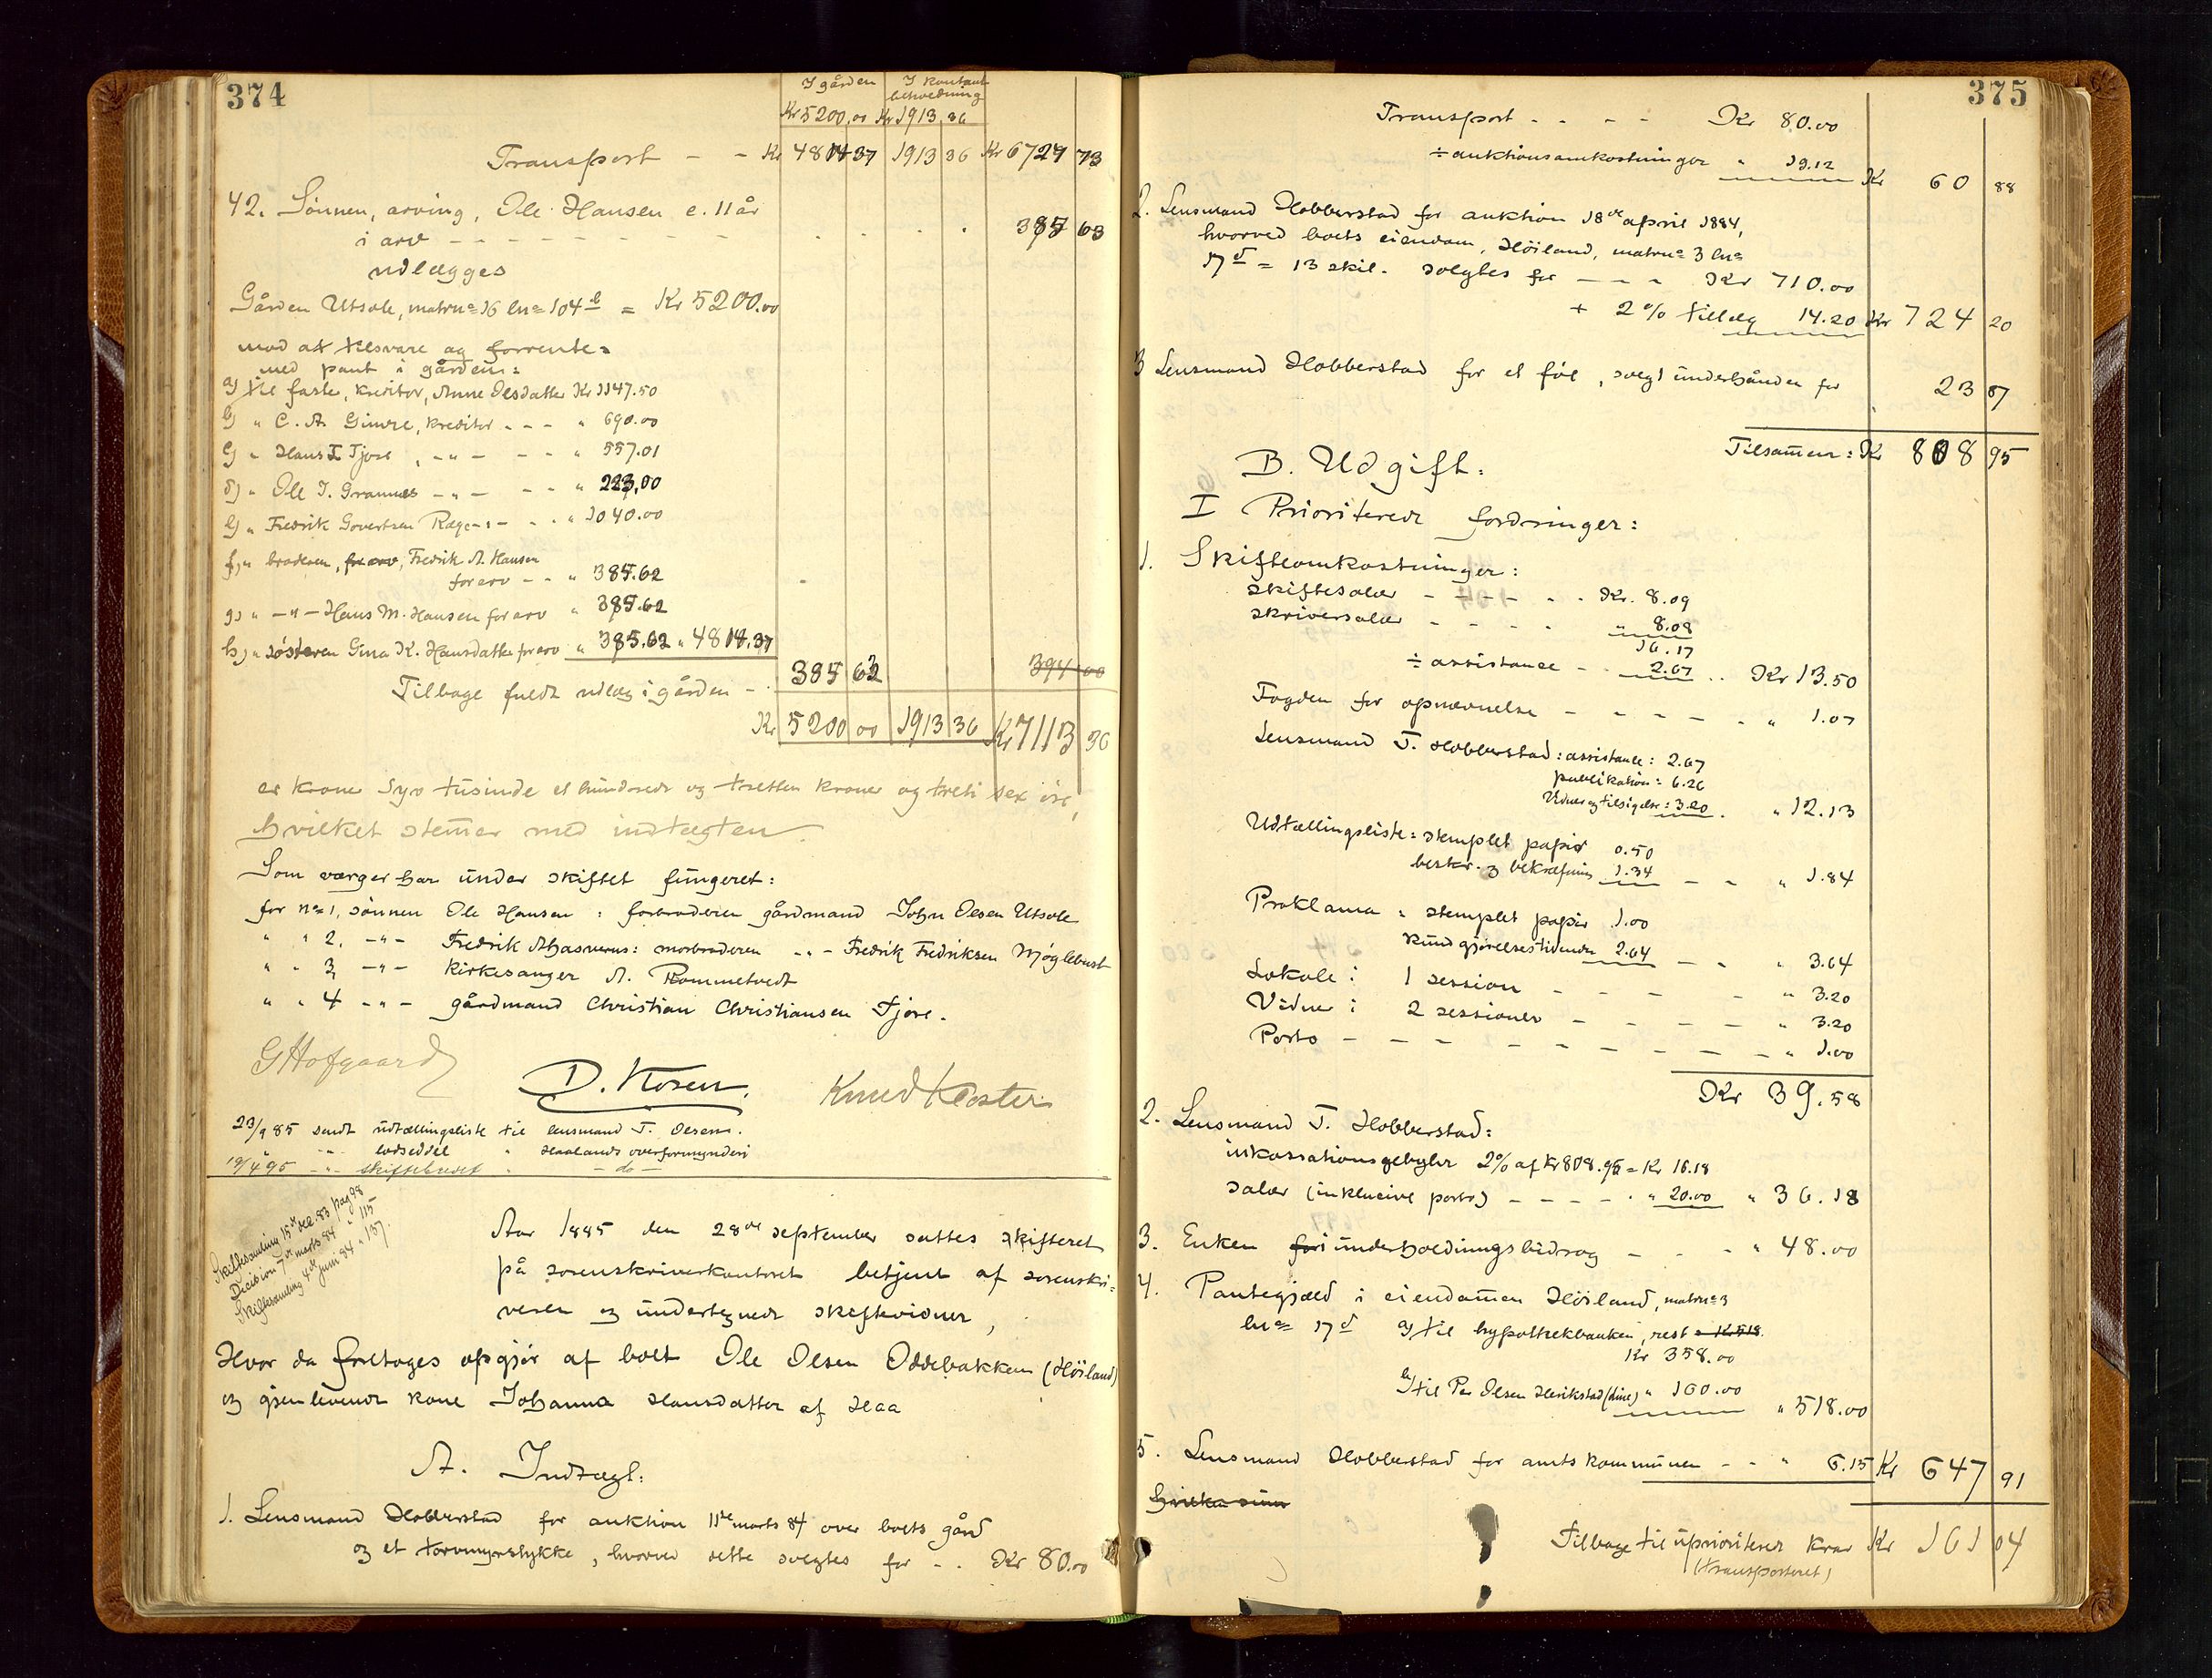 374
I gården I kontant
beholdning
Kr 5200,00 Kr 1913,36
Transport - - Kr 4814 37 1913 36 Kr 6727 73
42. Sønnen, arving, Ole Hansen e. 11 år
i arv - - - - - - - 385 63
udlægges
Gården Utsole, matrn= 16 ln= 104 b = Kr 5200.00
mod at tilsvare og forrente=
med pant i gården:
a) til faste, kreditor, Anne Olsdatter Kr 1147.50
b) " C. A. Gimre, kreditor - - - " 690.00
c) " Hans I Tjore, - " - - - " 557.01
d) " Ole T. Grannes - " - - - " 223,00
e) " Fredrik Govertsen Ræge - " - - - " 1040.00
f) " broderen, for arv, Fredrik A. Hansen
for arv - - " 385.62
g) " - " - Hans M. Hansen for arv " 385.62
h) " søsteren Gina K. Hansdatter for arv " 385.62 " 4814.37
Tilbage fuldt udlæg i gården - 385 63 394 00
Kr 5200 00 1913 36 Kr 7113 36
er kroner syv tusinde et hundrede og tretten kroner og treti sex øre,
hvilket stemmer med indtægten
Som værger har under skiftet fungeret:
for n= 1, sønnen Ole Hansen : farbroderen gårdmand John Olsen Utsole
" " 2, - " - Fredrik Ahasverus: morbroderen - " - Fredrik Fredriksen Møglebust
" " 3, - " - kirkesanger A. Rommetvedt
" " 4 - " - gårdmand Christian Christiansen Tjore.
G Hofgaard D. Rosen. Knud Kloster
23/9 85 sendt udtællingsliste til lensmand T. Olsen.
" - " - lodseddel " Haalands overformynderi
19/4 90 - " - skiftebrevet " - do -
Skiftesamling 15de dec 83 pag 98
Decision 7de marts 84 " 115
Skiftesamling 4de juni 84 " 137.
Aar 1885 den 28de september sattes skifteret
på sorenskriverkontoret betjent af sorenskri=
veren og undertegnede skiftevidner,
Hvor da foretoges opgjør af boet Ole Olsen Oddebakken (Høiland)
og gjenlevende kone Johanna Hansdatter af Haa
A. Indtægt:
1. Lensmand Hobberstad for auktion 11te marts 84 over boets gård
og et torvmyrstykke, hvorved dette solgtes for - . Kr 80.00
375
Transport - - - - Kr 80.00
÷ auktionsomkostninger " 19.12 Kr 60 88
2. Lensmand Hobberstad for auktion 18de april 1884,
hvorved boets eiendom, Høiland, matrn= 3 ln=
17 d = 13 skil. solgtes for - - - Kr 710.00
+ 2% tillæg 14.20 Kr 724 20
3 Lensmand Hobberstad for et føl, solgt underhånden for 23 87
Tilsammen: Kr 808 95
B. Udgift:
I Prioriterede fordringer:
1. Skifteomkostninger:
skiftesalær - - - - - Kr. 8.09
skriversalær - - - - " 8.08
16.17
÷ assistance - - 2.67 .. Kr 13.50
Fogden for opnævnelse - - - - - " 1.07
Lensmand T. Hobberstad: assistance: 2.67
publikation: 6.26
Vidner og tilsigelse: 3.20 . " 12.13
Udtællingsliste: stemplet papir 0.50
beskr. og bekræftning 1.34 - - " 1.84
Proklama: stemplet papir 1.00
kundgjørelsestidende 2.64 - - " 3.64
Lokale: 1 session - - - - " 3.20
Vidner: 2 sessioner - - - - " 3.20
Porto - - - - - - - - - " 1.00
Kr 39.58
2. Lensmand T. Hobberstad:
inkassationsgebyhr 2% af Kr 808.95 = Kr 16.18
salær (inklusive porto) - - - - " 20.00 " 36.18
3. Enken for i underholdningsbidrag - - - " 48.00
4. Pantegjæld i eiendommen Høiland, matrn= 3
ln= 17 d a) til hypothekbanken, rest = Kr 518.
Kr 358.00
b) til Per Olsen Herikstad (Line) " 160.00 " 518.00
5. Lensmand Hobberstad for amtskommunen - - " 6.15 Kr 647 91
hvilken sum
Tilbage til uprioriterede krav Kr 161 04
(transporteret)